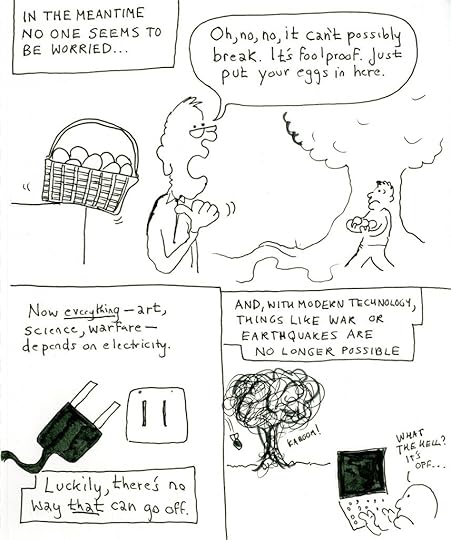 IN THE MEANTIME
NO ONE SEEMS TO
BE WORRIED...
Oh, no, no, it can't possibly
break. It's foolproof. Just
put your eggs in here.
Now everything — art,
science, warfare —
depends on electricity.
Luckily, there's no
way that can go off.
AND, WITH MODERN TECHNOLOGY,
THINGS LIKE WAR OR
EARTHQUAKES ARE
NO LONGER POSSIBLE
KABOOM!
WHAT
THE HELL?
IT'S
OFF...